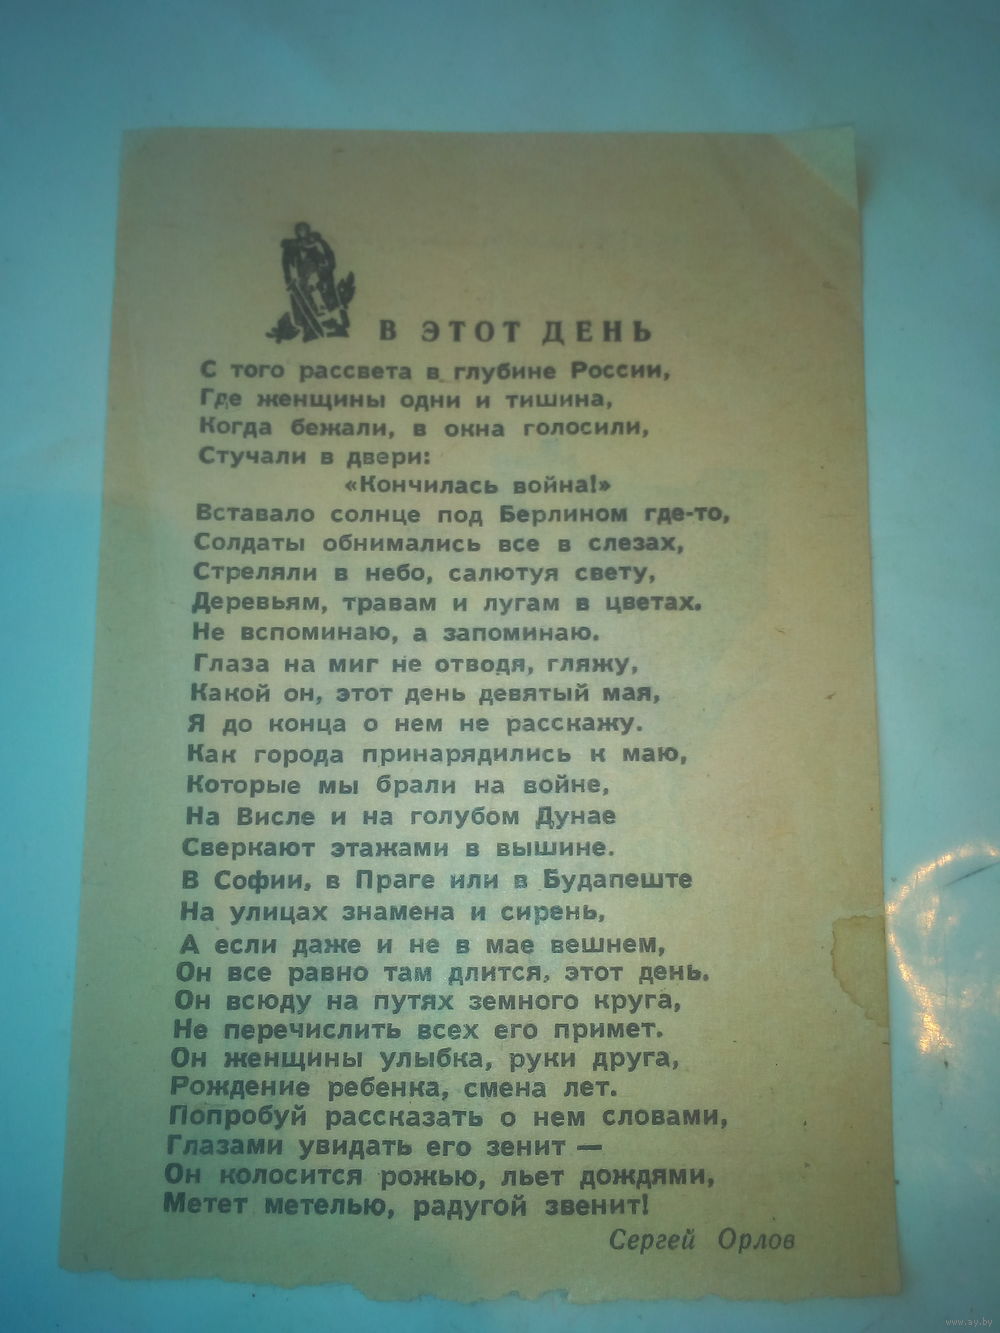 В ЭТОТ ДЕНЬ
С того рассвета в глубине России,
Где женщины одни и тишина,
Когда бежали, в окна голосили,
Стучали в двери:
«Кончилась война!»
Вставало солнце под Берлином где-то,
Солдаты обнимались все в слезах,
Стреляли в небо, салютуя свету,
Деревьям, травам и лугам в цветах.
Не вспоминаю, а запоминаю.
Глаза на миг не отводя, гляжу,
Какой он, этот день девятый мая,
Я до конца о нем не расскажу.
Как города принарядились к маю,
Которые мы брали на войне,
На Висле и на голубом Дунае
Сверкают этажами в вышине.
В Софии, в Праге или в Будапеште
На улицах знамена и сирень,
А если даже и не в мае вешнем,
Он все равно там длится, этот день.
Он всюду на путях земного круга,
Не перечислить всех его примет.
Он женщины улыбка, руки друга,
Рождение ребенка, смена лет.
Попробуй рассказать о нем словами,
Глазами увидать его зенит —
Он колосится рожью, льет дождями,
Метет метелью, радугой звенит!
Сергей Орлов
www.ay.by